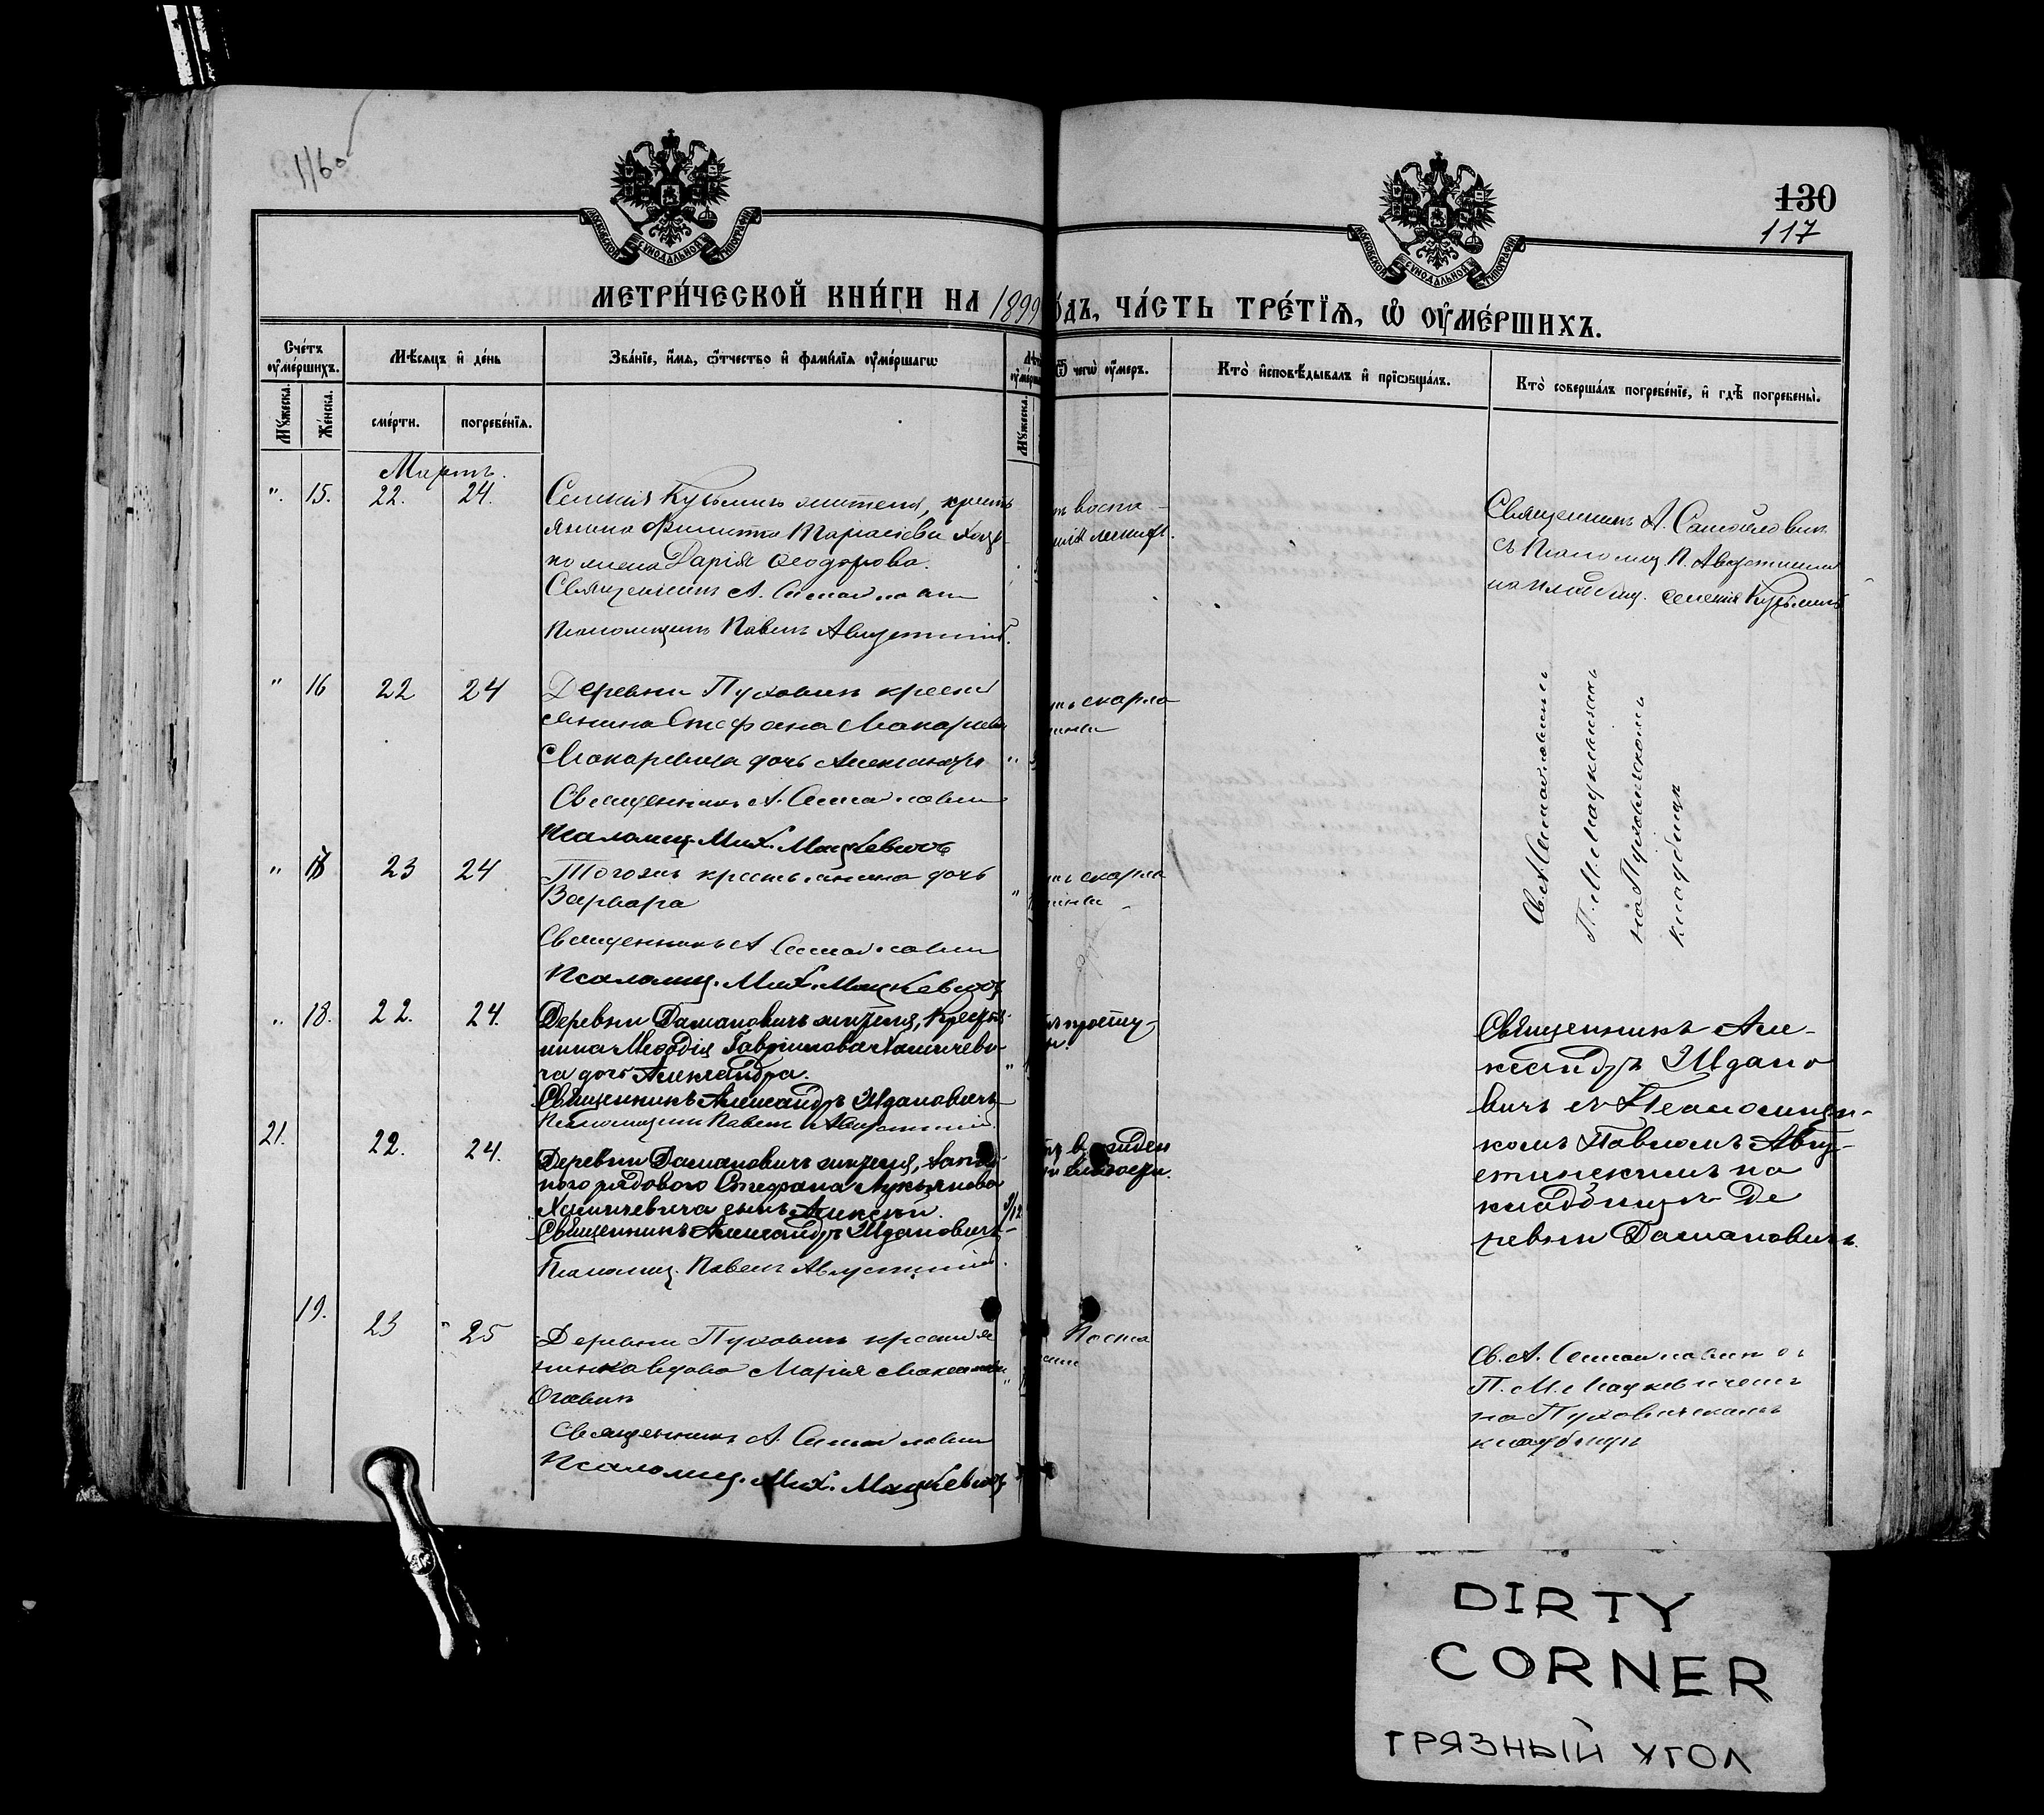 1/60
130
117
МОСКОВСКОЙ СѴНОДАЛЬНОЙ ТИПОГРАФІИ
МОСКОВСКОЙ СѴНОДАЛЬНОЙ ТИПОГРАФІИ
МЕТРИ́ЧЕСКОЙ КНИ́ГИ НА 1899
о́дъ, ЧА́СТЬ ТРЕ́ТЇѦ, Ѡ҆ ОУ҆МЕ́РШИХЪ.
Сче́тъ оу҆ме́ршихъ.
Мѣ́сяцъ и҆ де́нь
Зва́нїе, и҆́мя, ѻ҆́тчество и҆ фами́лїя оу҆ме́ршагѡ
Ѿ чегѡ̀ оу҆́меръ.
Кто̀ и҆сповѣ́дывалъ и҆ прїѡбща́лъ.
Кто̀ соверша́лъ погребе́нїе, и҆ гдѣ̀ погребены̀.
Мꙋ́жеска.
Же́нска.
сме́рти.
погребе́нїя.
Мꙋ́жеска.
Мартъ.
". 15. 22. 24.
Селенія Кузьмичъ жителя, кресть
янина Филиппа Тарасіева
жена Дарія Ѳеодорова.
Священникъ А. Самойловичъ
Псаломщикъ Павелъ Августинскій.
воспа-
Священникъ А. Самойлович
съ Псаломщ. П. Августински
на кладбищ. селенія Кузьмичъ
" 16 22 24
Деревни Пуховичъ крест
янина Стефана Макариева
Макаревича дочь Александра
Священникъ А. Самойлович
Псаломщ. Мих. Мацкевичъ
скарла
тины
Св. А. Самойловичъ
П. М. Мацкевичемъ
на Пуховичскомъ
кладбищѣ
" 17 23 24
Тогожъ крестьянина дочь
Варвара
Священникъ А Самойлович
Псаломщ. Мих. Мацкевичъ
скарла
тины
" 18. 22. 24.
Деревни Дамановичъ жителя, Крестья-
нина Меѳодія Гавріилова Хоминчеви-
ча дочь Александра.
Священникъ Александръ Ждановичъ
Псаломщикъ Павелъ Августинскій.
просту-
ды.
Священникъ Але-
ксандръ Ждано
вичъ съ Псаломщи-
комъ Павломъ Авгу-
стинскимъ на
кладбищѣ де
ревни Дамановичъ.
21. 22. 24.
Деревни Дамановичъ жителя, запас-
ного рядового Стефана Лукьянова
Хоминчевича сынъ Алексѣй.
Священникъ Александръ Ждановичъ
Псаломщ. Павелъ Августинскій.
19. 23 25
Деревни Пуховичъ крестья
нинка вдова Марія
Священникъ А. Самойлович
Псаломщ. Мих. Мацкевичъ
Св. А. Самойловичъ съ
П. М. Мацкевичемъ
на Пуховичскомъ
кладбищѣ
DIRTY
CORNER
ГРЯЗНЫЙ УГОЛ